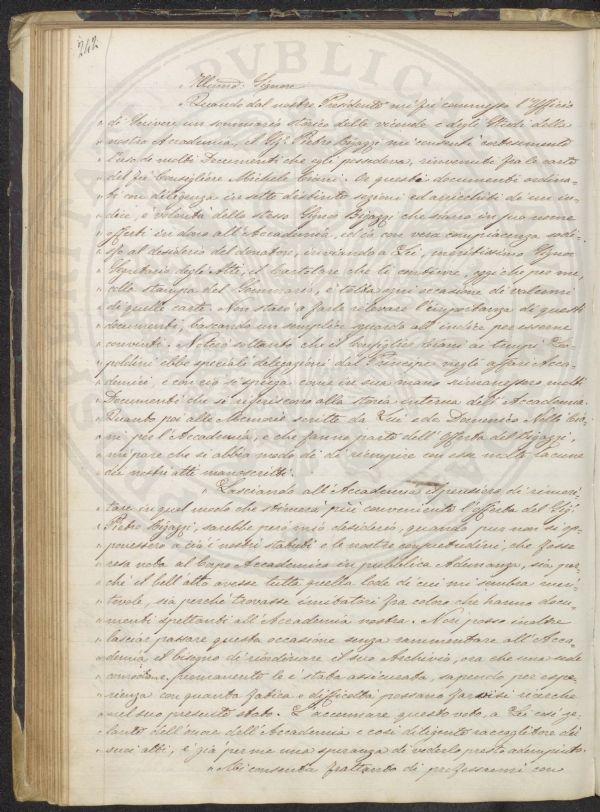 242
Illmo. Signore
" Quando dal nostro Presidente mi fu commesso l'Ufficio
" di scrivere un sommario storico delle vicende e degli Studi della
" nostra Accademia, il Sigr. Pietro Bigazzi mi consentì cortesemente
" l'uso di molti Documenti che egli possedeva, rinvenuti fra le carte
" del fu Consigliere Michele Ciani. Or questi documenti ordina-
" ti con diligenza in sette distinte sezioni ed arricchiti di un in-
" dice, è volontà dello stesso Signor Bigazzi che siano in suo nome
" offerti in dono all'Accademia, ed io con vera compiacenza sodi-
" sfo al desiderio del donatore, inviando a Lei, meritissimo Signor
" Segretario degli Atti, il Cartolare che li contiene, oggi che per me,
" colla stampa del Sommario, è tolta ogni occasione di valermi
" di quelle carte. Non starò a farle rilevare l'importanza di questi
" documenti, bastando un semplice sguardo all'indice per esserne
" convinti. Noterò soltanto che il Consigliere Ciani ai tempi Leo-
" poldini ebbe speciali delegazioni dal Principe negli affari Acca-
" demici, e con ciò si spiega come in sua mano rimanessero molti
" Documenti che si riferiscono alla storia interna dell'Accademia.
" Quanto poi alle Memorie scritte da Lui e da Domenico
" per l'Accademia, e che fanno parte dell'offerta del Bigazzi,
" mi pare che si abbia modo di riempire con esse molte lacune
" dei nostri atti manoscritti.
" Lasciando all'Accademia il pensiero di rimeri-
" tare in quel modo che stimerà più conveniente l'offerta del Sigr.
" Pietro Bigazzi, sarebbe però mio desiderio, quando pur non si op-
" ponessero a ciò i nostri statuti e le nostre consuetudini, che fosse
" resa nota al Corpo Accademico in pubblica Adunanza, sia per-
" chè il bell'atto avesse tutta quella lode di cui mi sembra meri-
" tevole, sia perchè trovasse imitatori fra coloro che hanno docu-
" menti spettanti all'Accademia nostra. Non posso inoltre
" lasciar passare questa occasione senza rammentare all'Acca-
" demia il bisogno di riordinare il suo Archivio, ora che una sede
" permanente le è stata assicurata, sapendo per espe-
" rienza con quanta fatica e difficoltà possano farvisi ricerche
" nel suo presente stato. L'accennare questo voto, a Lei così ze-
" lante dell'onore dell'Accademia e così diligente raccoglitore dei
" suoi atti, è già per me una speranza di vederlo presto adempiuto.
" Mi consenta frattanto di professarmi con